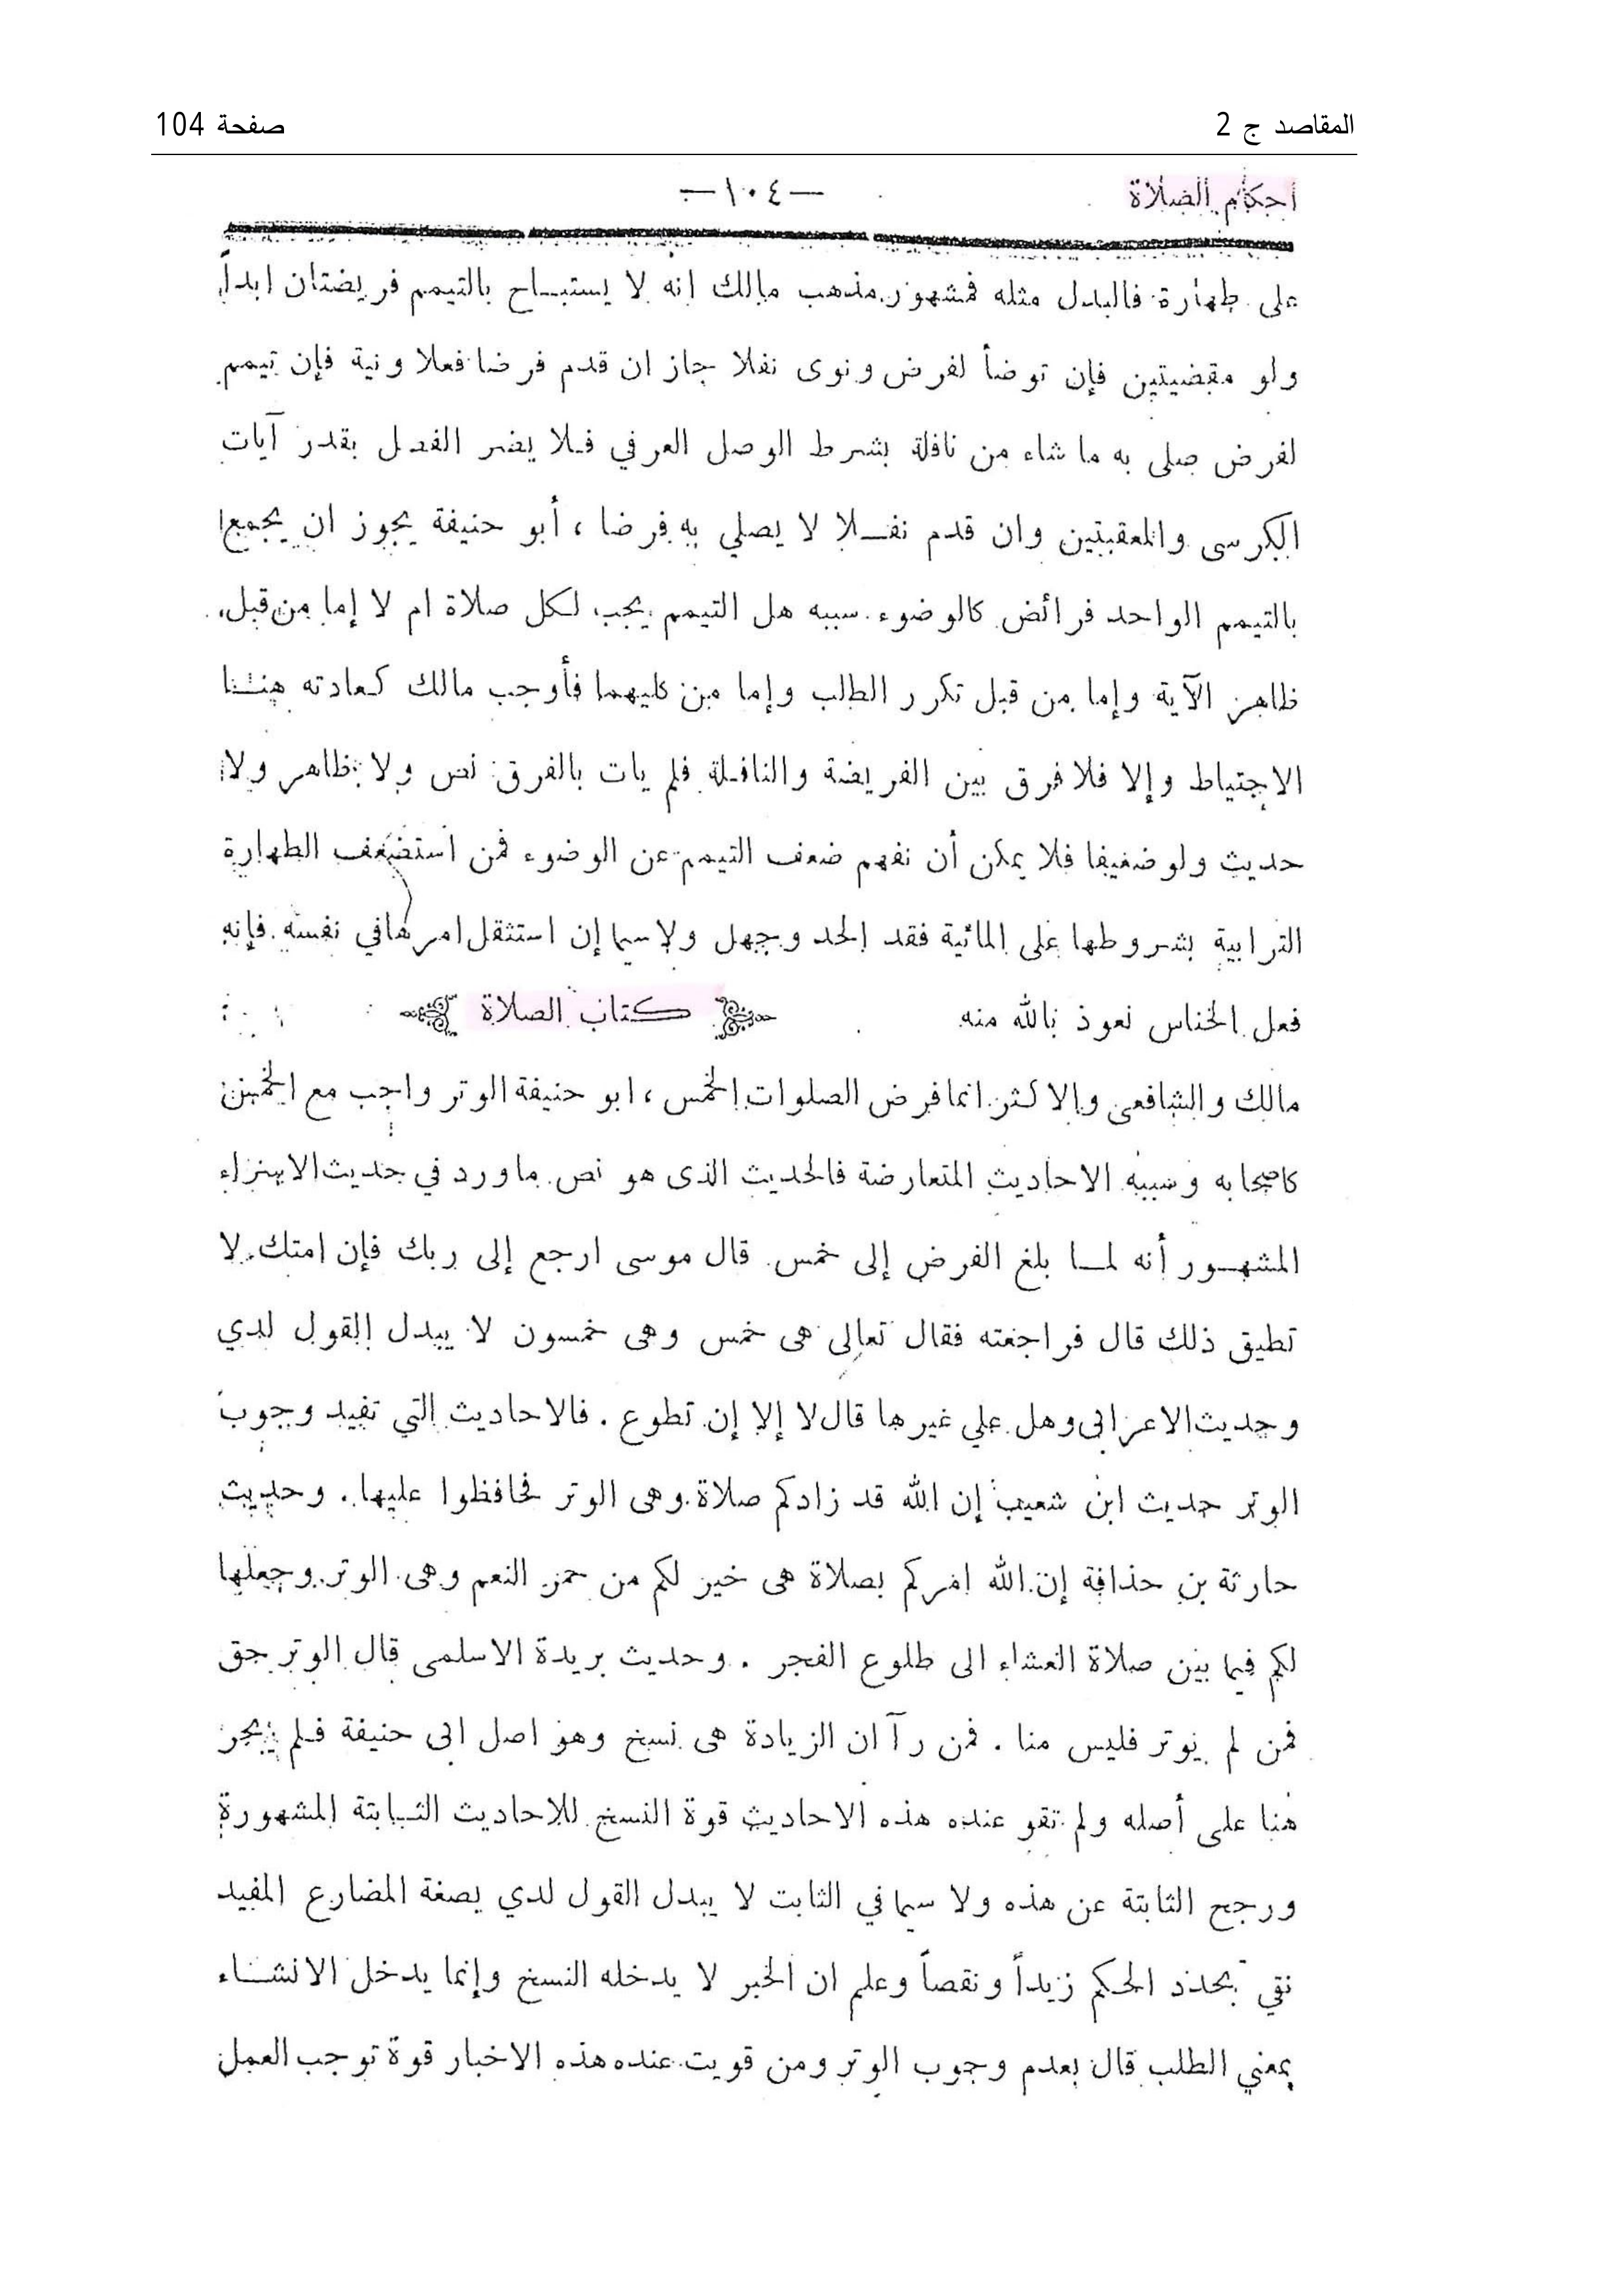 المقاصد ج 2 صفحة 104
أحكام الصلاة —١٠٤—
على طهارة فالبدل مثله فمشهور مذهب مالك انه لا يستباح بالتيمم فريضتان ابداً
ولو مقضيتين فإن توضأ لفرض ونوى نفلا جاز ان قدم فرضا فعلا ونية فإن تيمم
لفرض صلى به ما شاء من نافلة بشرط الوصل العرفي فلا يضر الفصل بقدر آيات
الكرسى والمعقبتين وان قدم نفلا لا يصلي به فرضا ، أبو حنيفة يجوز ان يجمع
بالتيمم الواحد فرائض كالوضوء سببه هل التيمم يجب لكل صلاة ام لا إما من قبل
ظاهر الآية وإما من قبل تكرر الطلب وإما من كليهما فأوجب مالك كعادته هنا
الاحتياط وإلا فلا فرق بين الفريضة والنافلة فلم يات بالفرق نص ولا ظاهر ولا
حديث ولو ضعيفا فلا يمكن أن نفهم ضعف التيمم عن الوضوء فمن استضعف الطهارة
الترابية بشروطها على المائية فقد الحد وجهل ولاسيما إن استثقل امرها في نفسه فإنه
فعل الخناس نعوذ بالله منه كتاب الصلاة
مالك والشافعى والاكثر انما فرض الصلوات الخمس ، ابو حنيفة الوتر واجب مع الخمس
كاصحابه وسببه الاحاديث المتعارضة فالحديث الذى هو نص ماورد في حديث الاسراء
المشهور أنه لما بلغ الفرض إلى خمس قال موسى ارجع إلى ربك فإن امتك لا
تطيق ذلك قال فراجعته فقال تعالى هى خمس وهى خمسون لا يبدل القول لدي
وحديث الاعرابى وهل علي غيرها قال لا إلا إن تطوع . فالاحاديث التي تفيد وجوب
الوتر حديث ابن شعيب إن الله قد زادكم صلاة وهى الوتر فحافظوا عليها . وحديث
حارثة بن حذافة إن الله امركم بصلاة هى خير لكم من حمر النعم وهى الوتر وجعلها
لكم فيما بين صلاة العشاء الى طلوع الفجر . وحديث بريدة الاسلمى قال الوتر حق
فمن لم يوتر فليس منا . فمن رآ ان الزيادة هى نسخ وهو اصل ابى حنيفة فلم يجر
هنا على أصله ولم تقو عنده هذه الاحاديث قوة النسخ للاحاديث الثابتة المشهورة
ورجح الثابتة عن هذه ولا سيما في الثابت لا يبدل القول لدي بصغة المضارع المفيد
نفي تجدد الحكم زيداً ونقصاً وعلم ان الخبر لا يدخله النسخ وإنما يدخل الانشاء
بمعني الطلب قال بعدم وجوب الوتر ومن قويت عنده هذه الاخبار قوة توجب العمل